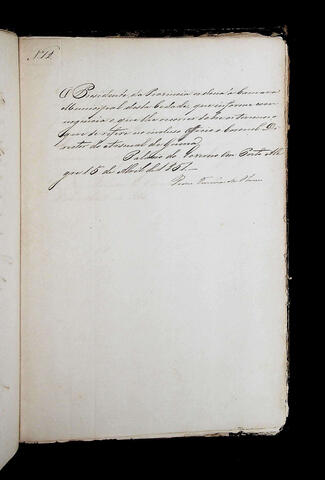 Nº 12
O Presidente da Provincia ordena á Camara
Municipal desta Cidade, que informe com
urgencia o que lhe
que se refere no incluso officio o Coronel Di-
rector do Arsenal de Guerra.
Palacio do Governo em Porto Ale-
gre 15 de Abril de 1851.